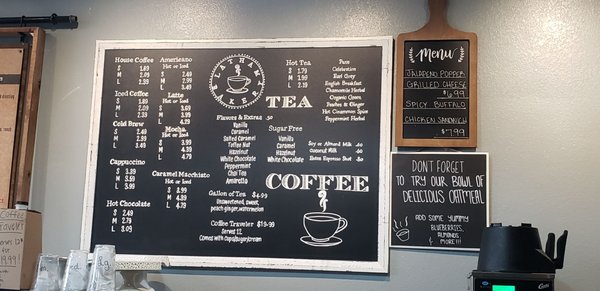 House Coffee
S 1.89
M 2.09
L 2.39
Iced Coffee
S 1.89
M 2.09
L 2.39
Cold Brew
S 2.49
M 2.99
L 3.49
Cappuccino
S 3.39
M 3.99
L 4.59
Hot Chocolate
S 2.49
M 2.79
L 3.09
Americano
Hot or Iced
S 2.49
M 2.99
L 3.49
Latte
Hot or Iced
S 3.09
M 3.69
L 4.29
Mocha
Hot or Iced
S 3.39
M 3.99
L 4.59
Caramel Macchiato
Hot or Iced
S 3.99
M 4.39
L 4.79
BLATHAM'S
BAKERY
Hot Tea
S 1.79
M 1.99
L 2.19
TEA
Celebration
Earl Grey
English Breakfast
Chamomile Herbal
Organic Green
Peaches & Ginger
Hot Cinnamon Spice
Peppermint Herbal
Flavors & Extras
Vanilla
Caramel
Salted Caramel
Toffee Nut
Hazelnut
White Chocolate
Peppermint
Chai Tea
Amaretto
Sugar Free
Vanilla
Caramel
Hazelnut
White Chocolate
Soy or Almond Milk
Coconut Milk
Extra Espresso Shot
COFFEE
Gallon of Tea $4.99
Unsweetened, sweet,
peach-ginger, watermelon
Coffee Traveler $19.99
Serves 12
Comes with cups/sugar/cream
Menu
JALAPENO POPPER
GRILLED CHEESE
$6.99
SPICY BUFFALO
CHICKEN SANDWICH
$7.99
DON'T FORGET
TO TRY OUR BOWL OF
DELICIOUS OATMEAL
ADD SOME YUMMY
BLUEBERRIES,
ALMONDS
& MORE!!